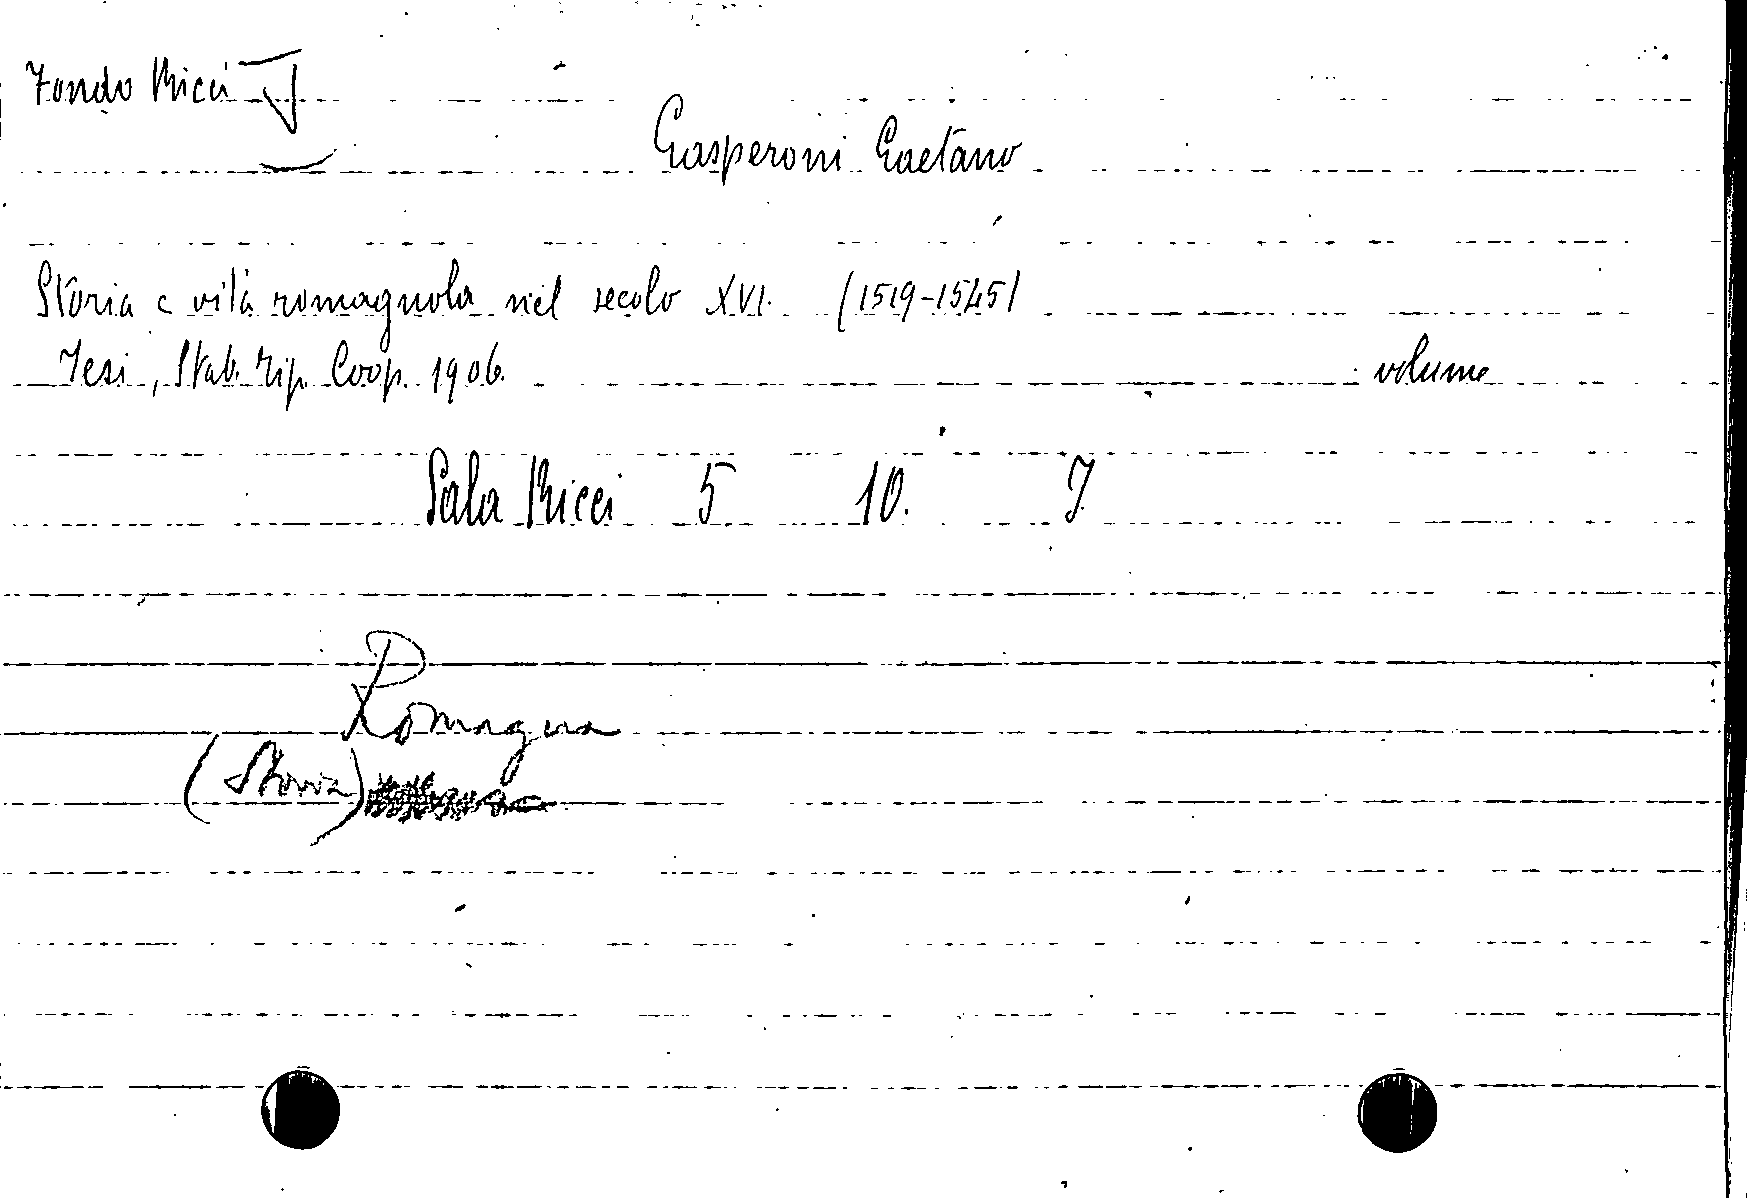 Fondo Ricci
Gasperoni Gaetano
Storia e vita romagnola nel secolo XVI. (1519-1545)
Jesi, Stab. Tip. Coop. 1906. volume
Sala Ricci 5 10. J.
Romagna
(Storia)